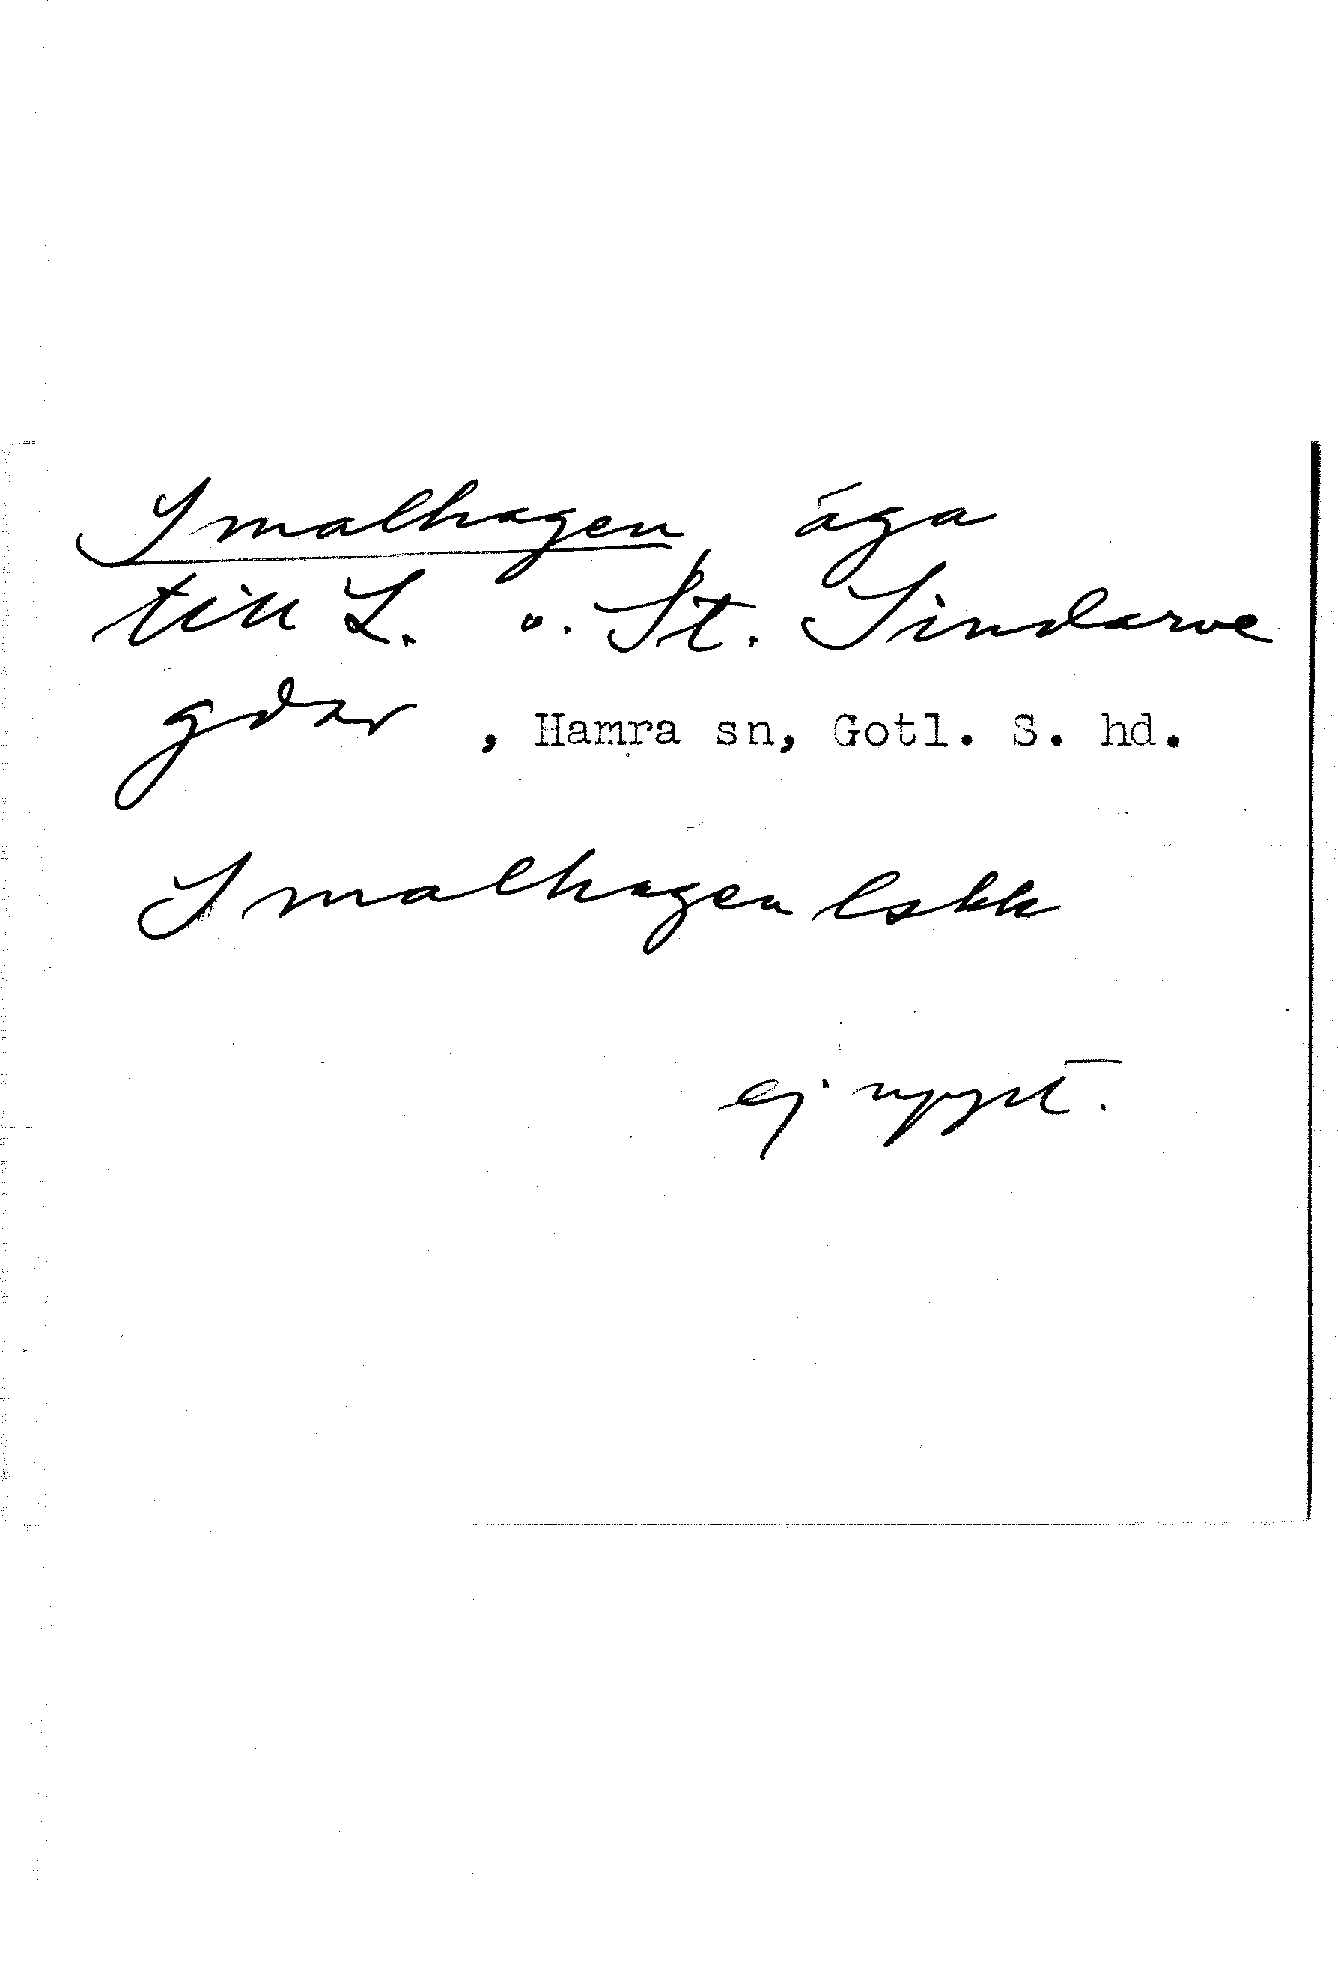 Smalhagen, äga
till L. o. St. Sindarve
gdar, Hamra sn, Gotl. S. hd.
Smalhagen lskk
ej uppt.